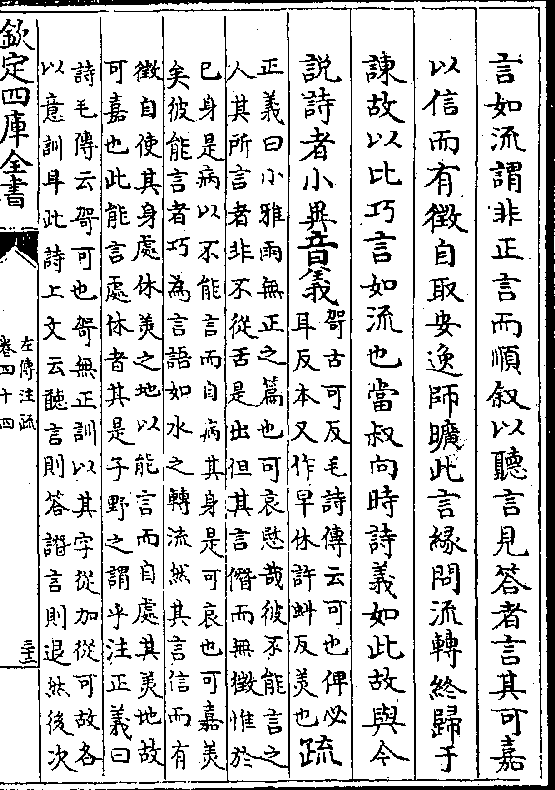 言如流謂非正言而順叙以聽言見答者言其可嘉
以信而有徵自取安逸師曠此言緣問流轉終歸于
諫故以比巧言如流也當叔向時詩義如此故與今
説詩者小異音義哿古可反毛詩傳云可也俾必
耳反本又作早休許虯反美也疏
正義曰小雅雨無正之篇也可哀愍哉彼不能言之
人其所言者非不從舌是出但其言僭而無徵惟於
已身是病以不能言而自病其身是可哀也可嘉美
矣彼能言者巧為言語如水之轉流然其言信而有
徵自使其身處休美之地以能言而自處其美地故
可嘉也此能言處休者其是子野之謂乎注正義曰
詩毛傳云哿可也哿無正訓以其字從加從可故各
以意訓耳此詩上文云聽言則答譖言則退然後次
欽定四庫全書
左傳注疏
卷四十四
三十三